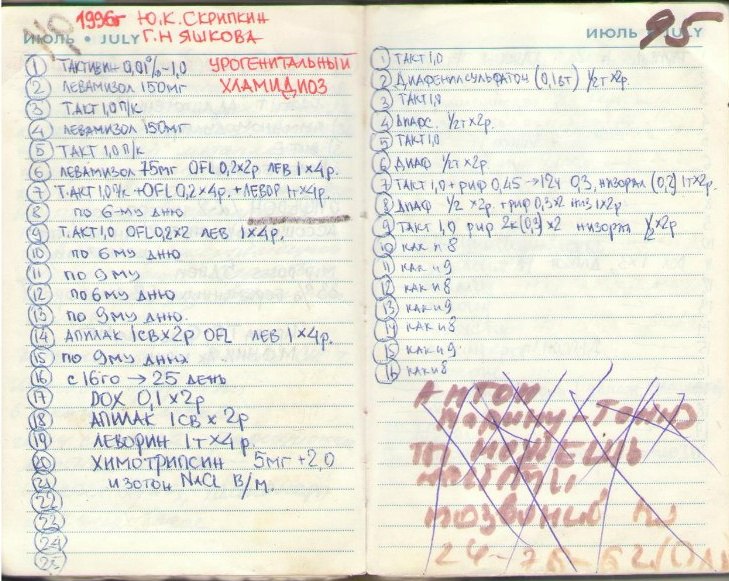 1996г Ю.К. СКРИПКИН
Г.Н ЯШКОВА
ИЮЛЬ • JULY
1 ТАКТИВИН 0,01% - 1,0 УРОГЕНИТАЛЬНЫЙ
2 ЛЕВАМИЗОЛ 150МГ ХЛАМИДИОЗ
3 ТАКТ 1,0 П/К
4 ЛЕВАМИЗОЛ 150МГ
5 ТАКТ 1,0 П/К
6 ЛЕВАМИЗОЛ 75МГ OFL 0,2×2р ЛЕВ 1×4р.
7 Т.АКТ 1,0 П/К + OFL 0,2×4р. + ЛЕВОР 1т×4р.
8 ПО 6-МУ ДНЮ
9 Т.АКТ 1,0 OFL 0,2×2 ЛЕВ 1×4р.
10 ПО 6МУ ДНЮ
11 ПО 9МУ
12 ПО 6МУ ДНЮ
13 ПО 9МУ ДНЮ.
14 АПИЛАК 1СВ×2р OFL ЛЕВ 1×4р.
15 ПО 9МУ ДНЮ
16 С 16ГО → 25 ДЕНЬ
17 DOX 0,1×2р
18 АПИЛАК 1СВ × 2р
19 ЛЕВОРИН 1т×4р.
20 ХИМОТРИПСИН 5МГ + 2,0
21 ИЗОТОН NaCl В/М.
22
23
24
25
ИЮЛЬ • JULY 95
1 ТАКТ 1,0
2 ДИАФЕНИЛСУЛЬФАТОН (0,1вт) ½т×2р.
3 ТАКТ 1,0
4 ДИАФС. ½т×2р.
5 ТАКТ 1,0
6 ДИАФ ½т×2р
7 ТАКТ 1,0 + РИФ 0,45 → 12ч 0,3, НИЗОРАЛ (0,2) 1т×2р.
8 ДИАФ ½ ×2р. + РИФ 0,3×2 1×2р
9 ТАКТ 1,0 РИФ 2к(0,3)×2 НИЗОРАЛ ½×2р
10 КАК И 8
11 КАК И 9
12 КАК И 8
13 КАК И 9
14 КАК И 8
15 КАК И 9
16 КАК И 8
АНТОН